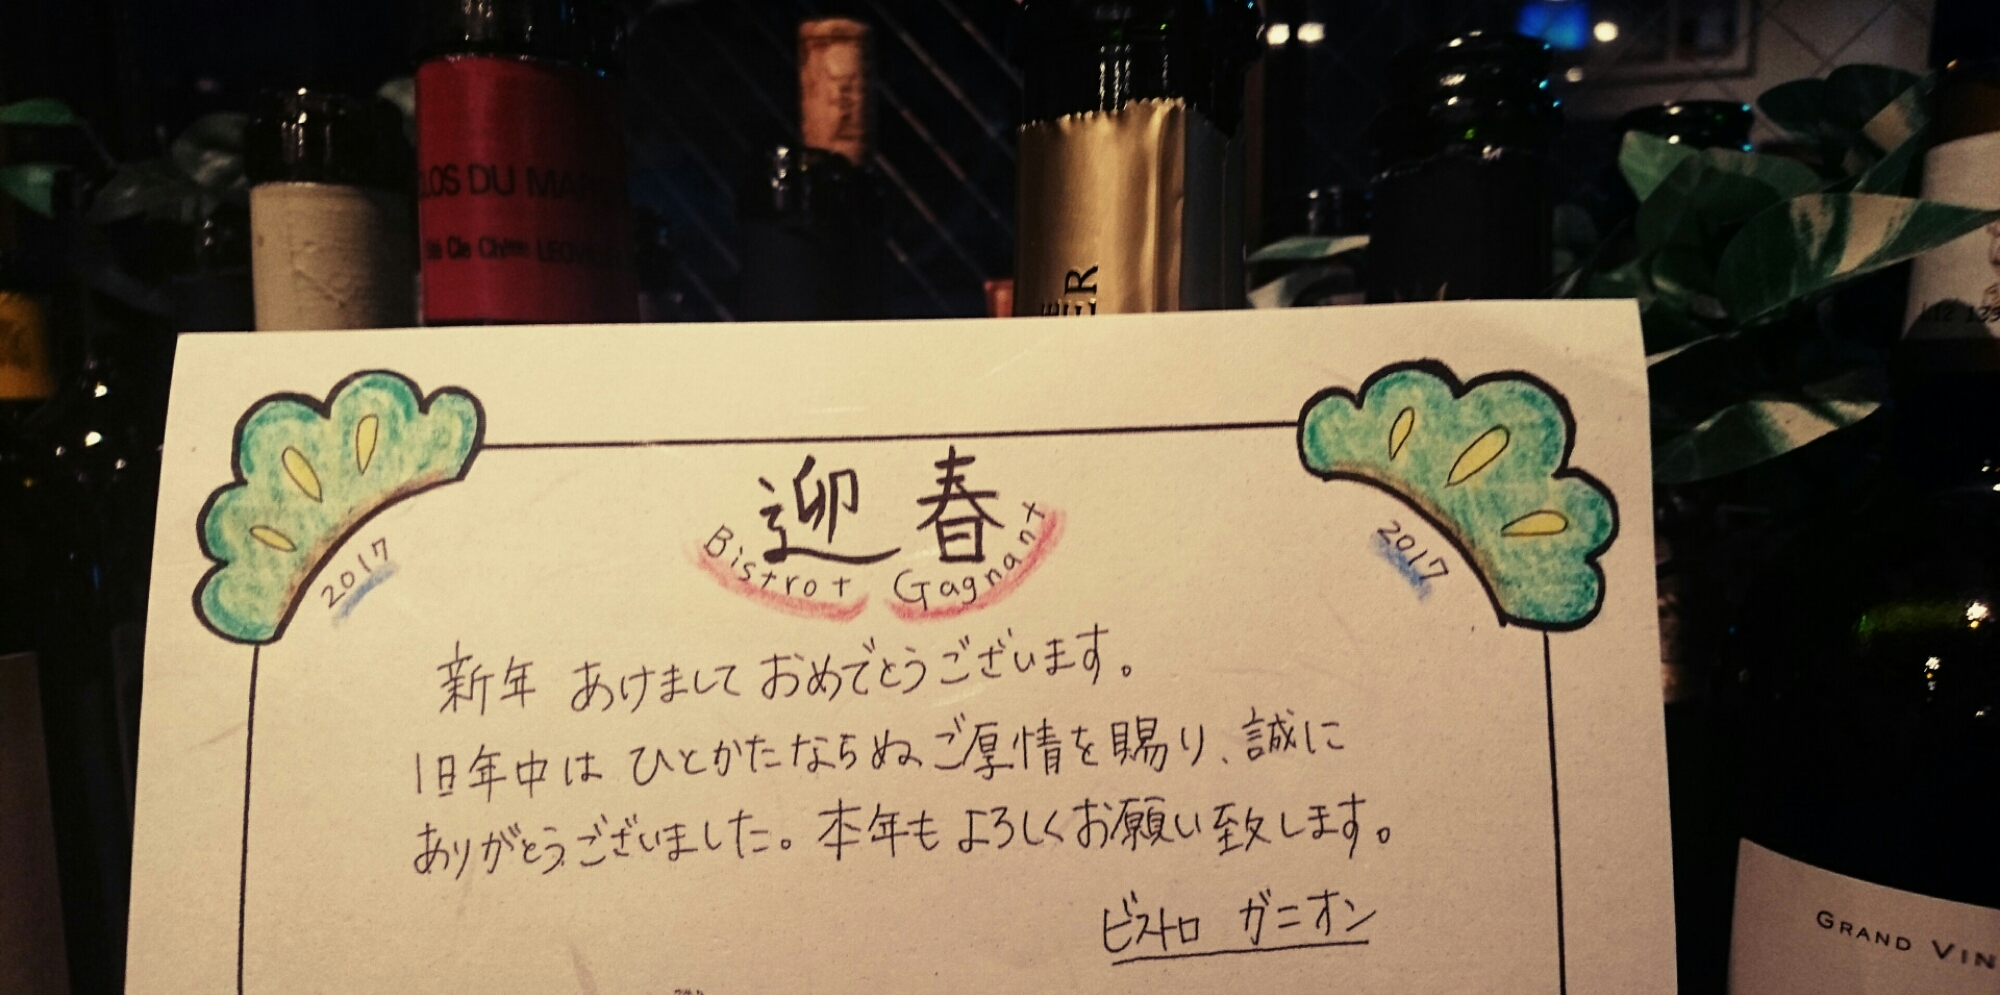 LOS DU MAR
Cie Chêne LEOV
ER
迎春
Bistrot Gagnant
2017
2017
新年 あけまして おめでとうございます。
旧年中は ひとかたならぬ ご厚情を賜り、誠に
ありがとうございました。本年も よろしくお願い致します。
ビストロ ガニオン
GRAND VIN